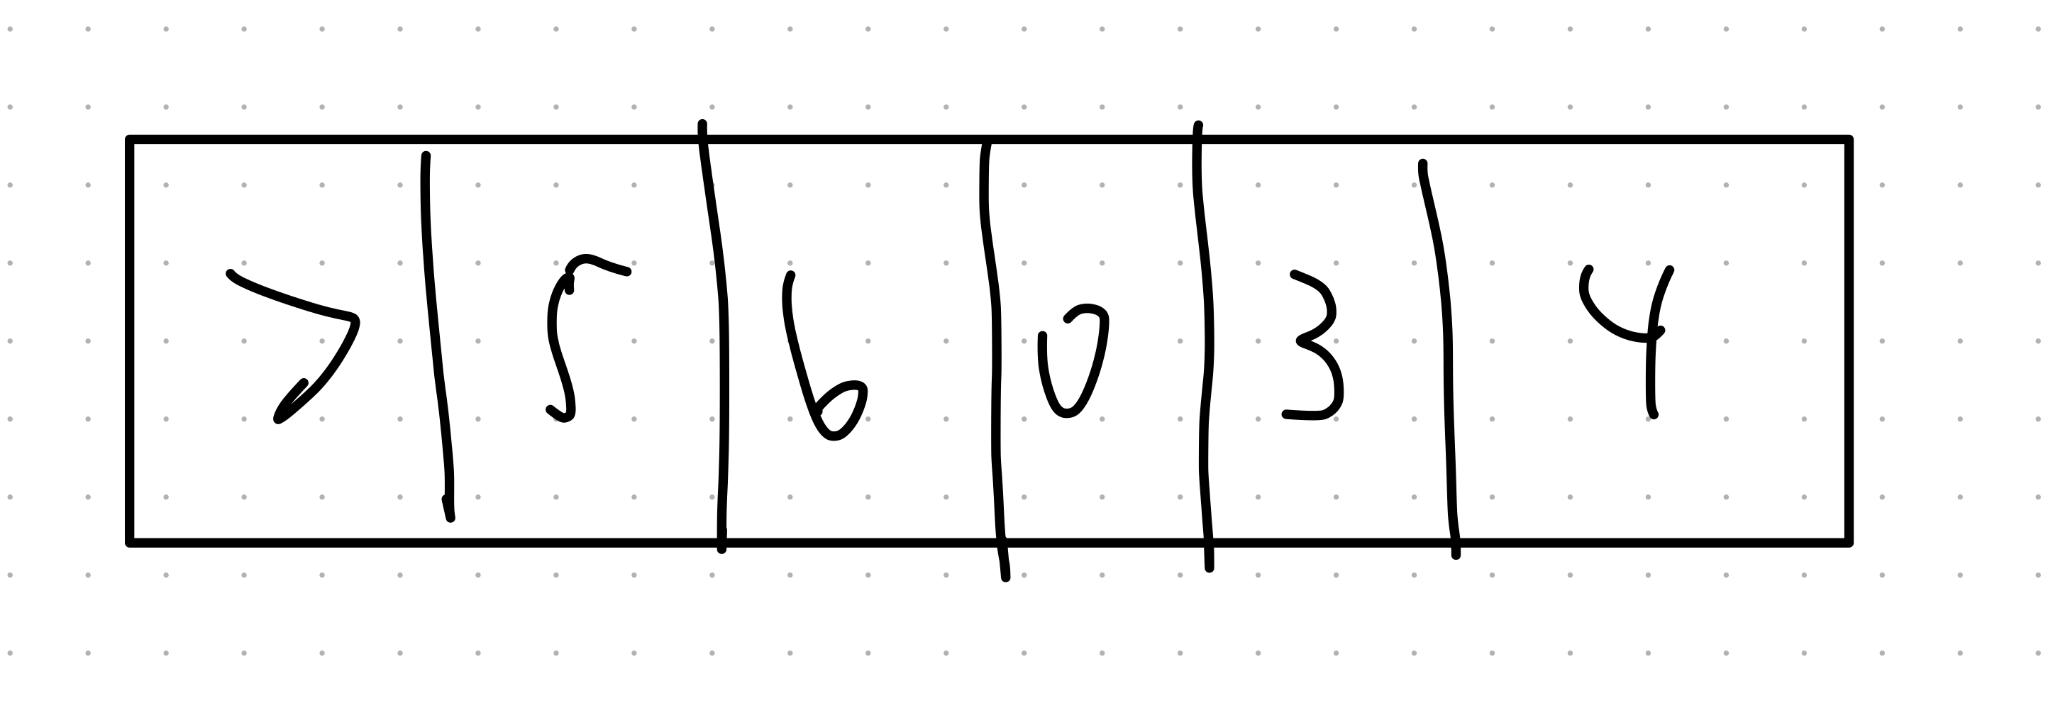 7 5 6 0 3 4